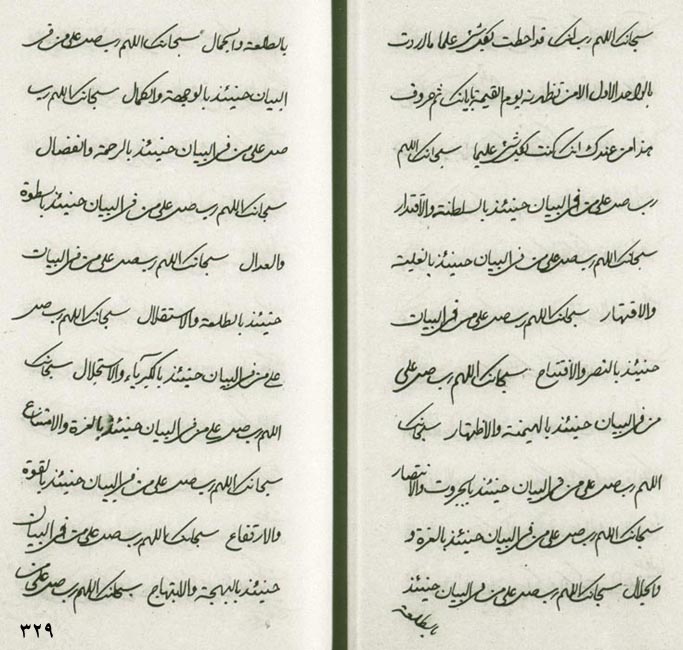 سبحانك اللهم رب انك قد احطت بكل شئ علما ما اردت
بالواحد الاول الا من تظهرنه يوم القيمة باياتك ثم حروف
هذا من عندك انك كنت بكل شئ عليما سبحانك اللهم
رب صل على من في البيان حينئذ بالسلطنة والاقتدار
سبحانك اللهم رب صل على من في البيان حينئذ بالغلبة
والاقهار سبحانك اللهم رب صل على من في البيان
حينئذ بالنصر والافتتاح سبحانك اللهم رب صل على
من في البيان حينئذ بالهيمنة والاظهار سبحانك
اللهم رب صل على من في البيان حينئذ بالجبروت والانتصار
سبحانك اللهم رب صل على من في البيان حينئذ بالعزة و
والجلال سبحانك اللهم رب صل على من في البيان حينئذ
بالطلعة
بالطلعة والجمال سبحانك اللهم رب صل على من في
البيان حينئذ بالوجهة والكمال سبحانك اللهم رب
صل على من في البيان حينئذ بالرحمة والفضال
سبحانك اللهم رب صل على من في البيان حينئذ بالسطوة
والعدال سبحانك اللهم رب صل على من في البيان
حينئذ بالطلعة والاستقلال سبحانك اللهم رب صل
على من في البيان حينئذ بالكبرياء والاستجلال سبحانك
اللهم رب صل على من في البيان حينئذ بالعزة والامتناع
سبحانك اللهم رب صل على من في البيان حينئذ بالقوة
والارتفاع سبحانك اللهم رب صل على من في البيان
حينئذ بالبهجة والابتهاج سبحانك اللهم رب صل على من
٣٢٩